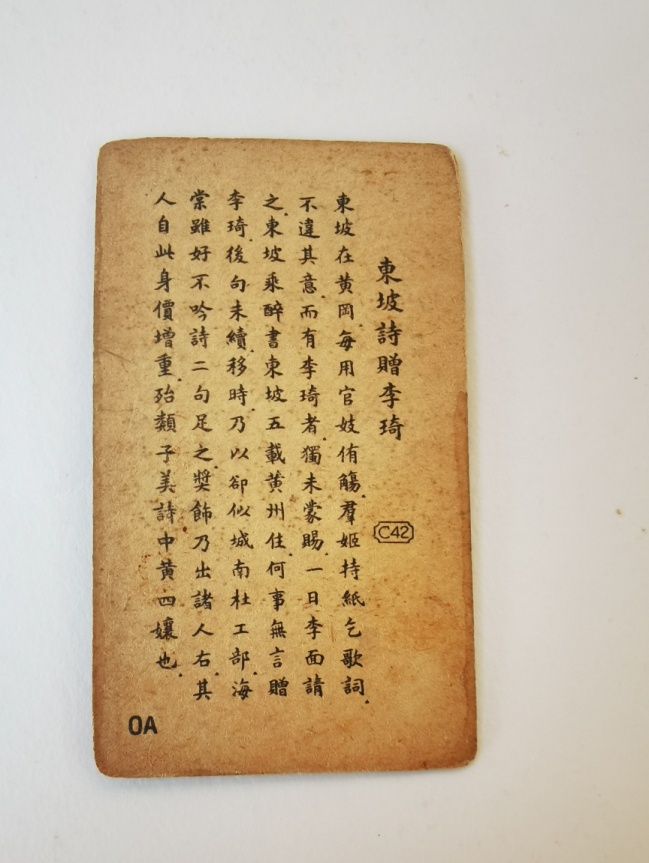 東坡詩贈李琦
C42
東坡在黃岡每用官妓侑觴羣姬持紙乞歌詞
不違其意而有李琦者獨未蒙賜一日李面請
之東坡乘醉書東坡五載黃州住何事無言贈
李琦後句未續移時乃以卻似城南杜工部海
棠雖好不吟詩二句足之獎飾乃出諸人右其
人自此身價增重殆類子美詩中黃四孃也
OA